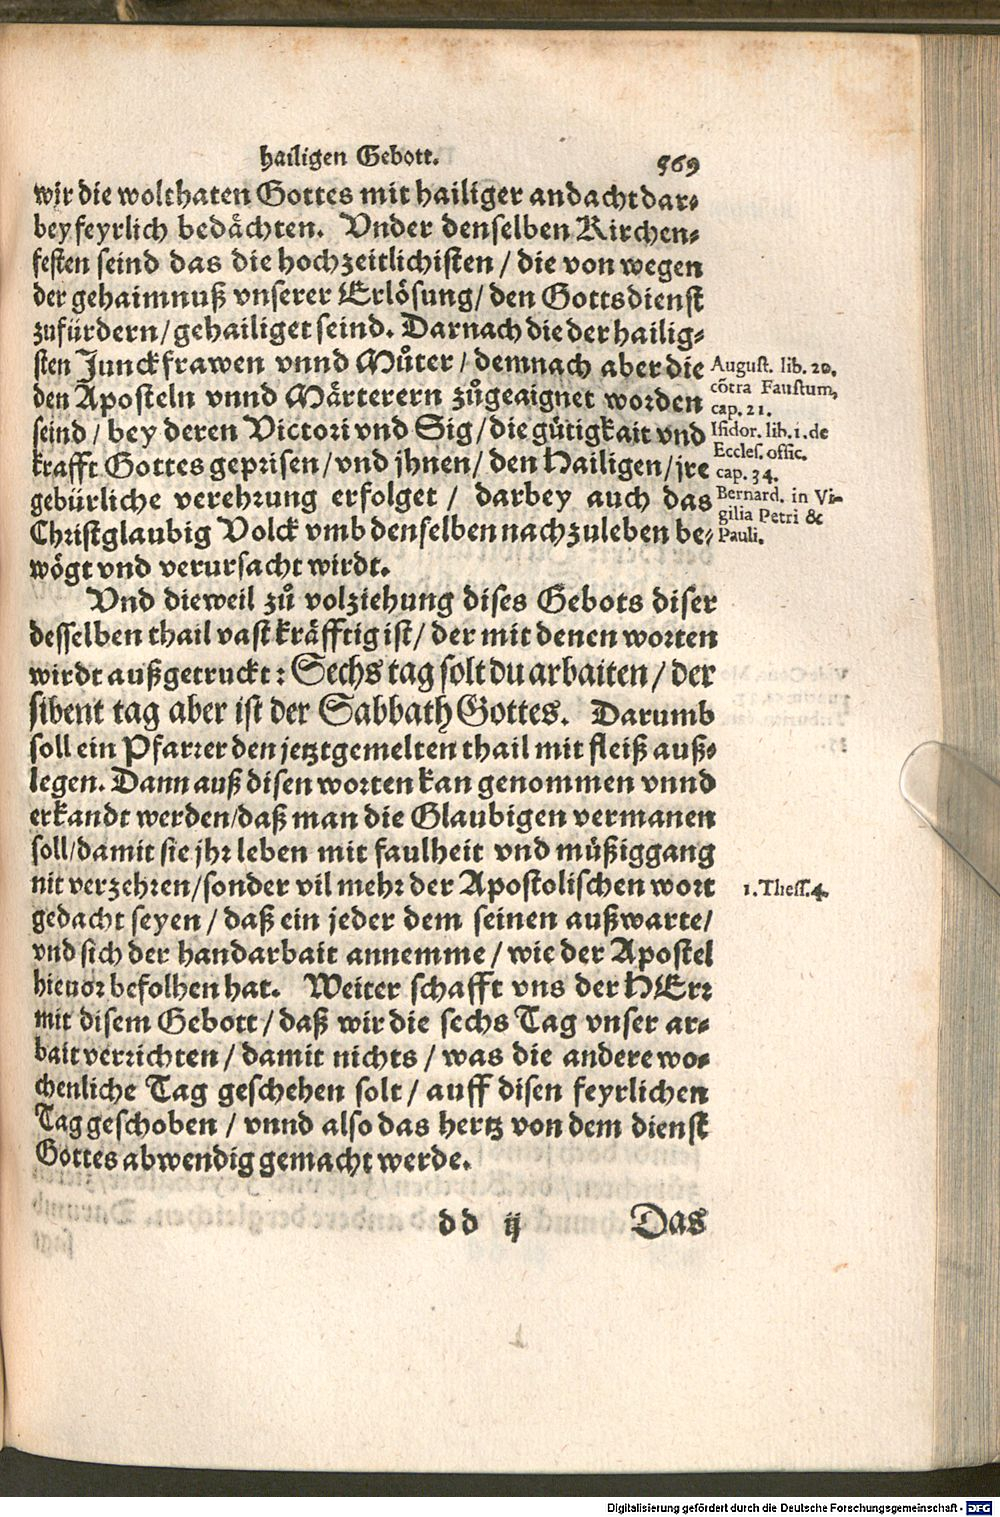 hailigen Gebott. 569
wir die wolthaten Gottes mit hailiger andacht dar⸗
bey feyrlich bedächten. Vnder denselben Kirchen⸗
festen seind das die hochzeitlichisten / die von wegen
der gehaimnuß vnserer Erlösung/ den Gottsdienst
zufürdern/ gehailiget seind. Darnach die der hailig⸗
sten Junckfrawen vnnd Můter / demnach aber die
den Aposteln vnnd Märterern zůgeaignet worden
seind / bey deren Victori vnd Sig/ die gütigkait vnd
krafft Gottes geprisen/ vnd jhnen/ den Hailigen/ jre
gebürliche verehrung erfolget / darbey auch das
Christglaubig Volck vmb denselben nachzuleben be⸗
wögt vnd verursacht wirdt.
August. lib. 20.
cõtra Faustum,
cap. 21.
Isidor. lib. 1. de
Eccles. offic.
cap. 34.
Bernard. in Vi-
gilia Petri &
Pauli.
Vnd dieweil zů volziehung dises Gebots diser
desselben thail vast kräfftig ist/ der mit denen worten
wirdt außgetruckt: Sechs tag solt du arbaiten/ der
sibent tag aber ist der Sabbath Gottes. Darumb
soll ein Pfarrer den jetztgemelten thail mit fleiß auß⸗
legen. Dann auß disen worten kan genommen vnnd
erkandt werden/ daß man die Glaubigen vermanen
soll/ damit sie jhr leben mit faulheit vnd müßiggang
nit verzehren/ sonder vil mehr der Apostolischen wort
gedacht seyen / daß ein jeder dem seinen außwarte/
vnd sich der handarbait annemme / wie der Apostel
hieuor befolhen hat. Weiter schafft vns der HErr
mit disem Gebott / daß wir die sechs Tag vnser ar⸗
bait verrichten / damit nichts / was die andere wo⸗
chenliche Tag geschehen solt / auff disen feyrlichen
Tag geschoben / vnnd also das hertz von dem dienst
Gottes abwendig gemacht werde.
1. Thess. 4.
dd ij Das
Digitalisierung gefördert durch die Deutsche Forschungsgemeinschaft - DFG